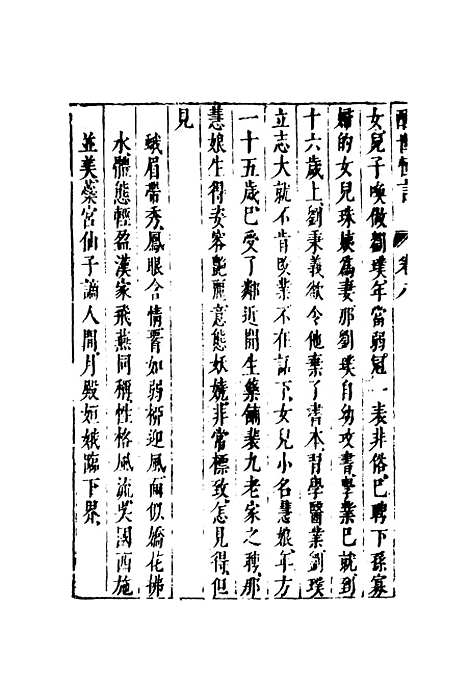 醒世恒言 卷八
女兒子喚做劉璞年當弱冠一表非俗巳聘下孫寡
婦的女兒珠姨爲妻那劉璞自幼攻書學業巳就到
十六歲上劉秉義欲令他棄了書本習學醫業劉璞
立志大就不肯改業不在話下女兒小名慧娘年方
一十五歲巳受了鄰近開生藥舖裴九老家之聘那
慧娘生得姿容艷麗意態妖嬈非常標致怎見得但
見
蛾眉帶秀鳳眼含情腰如弱柳迎風面似嬌花拂
水體態輕盈漢家飛燕同稱性格風流吳國西施
並美蘂宮仙子謫人間月殿姮娥臨下界